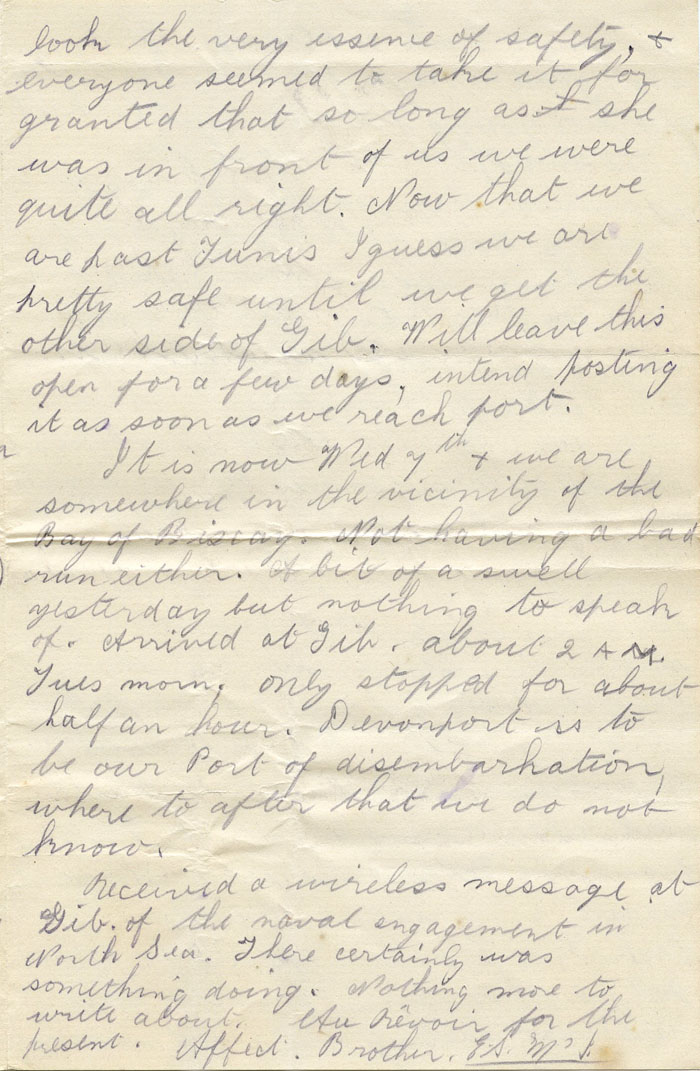 look the very essence of safety, &
everyone seemed to take it for
granted that so long as she
was in front of us we were
quite all right. Now that we
are past Tunis I guess we are
pretty safe until we get the
other side of Gib. Will leave this
open for a few days, intend posting
it as soon as we reach port.
It is now Wed 7th & we are
somewhere in the vicinity of the
Bay of Biscay. Not having a bad
run either. A bit of a swell
yesterday but nothing to speak
of. Arrived at Gib. about 2 AM.
Tues morn. only stopped for about
half an hour. Devonport is to
be our Port of disembarkation,
where to after that we do not
know.
Received a wireless message at
Gib. of the naval engagement in
North Sea. There certainly was
something doing. Nothing more to
write about. Au Revoir for the
present. Affect. Brother.